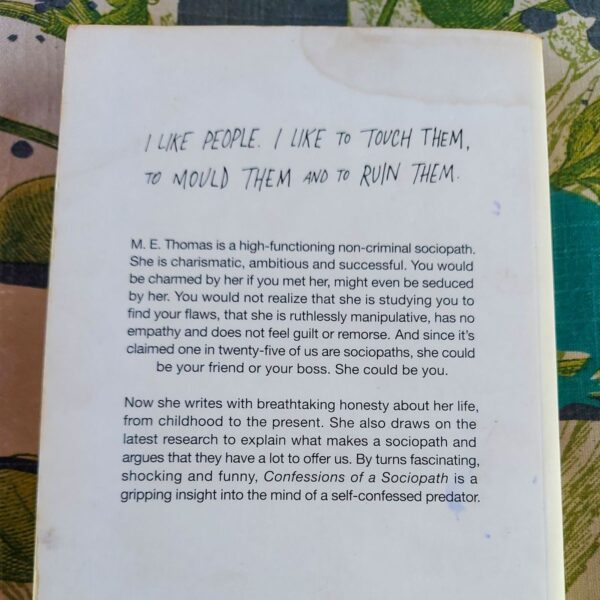 I LIKE PEOPLE. I LIKE TO TOUCH THEM,
TO MOULD THEM AND TO RUIN THEM.
M. E. Thomas is a high-functioning non-criminal sociopath.
She is charismatic, ambitious and successful. You would
be charmed by her if you met her, might even be seduced
by her. You would not realize that she is studying you to
find your flaws, that she is ruthlessly manipulative, has no
empathy and does not feel guilt or remorse. And since it's
claimed one in twenty-five of us are sociopaths, she could
be your friend or your boss. She could be you.
Now she writes with breathtaking honesty about her life,
from childhood to the present. She also draws on the
latest research to explain what makes a sociopath and
argues that they have a lot to offer us. By turns fascinating,
shocking and funny, Confessions of a Sociopath is a
gripping insight into the mind of a self-confessed predator.